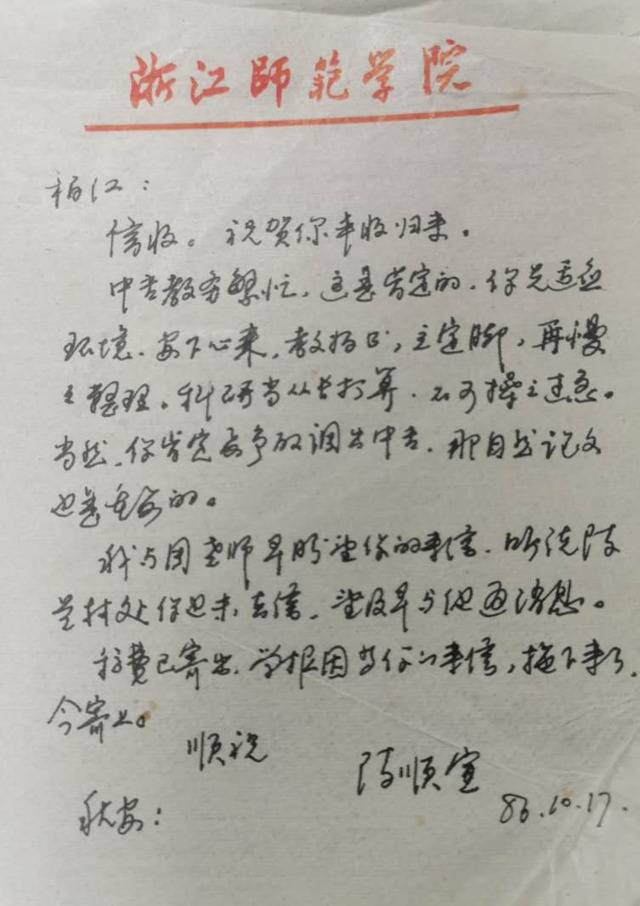 浙江師範学院
柏江：
信收。祝贺你丰收归来。
中专教务繁忙，这是肯定的。你先适应
环境，安下心来，教好书，立定脚，再慢
之整理。科研当从长打算，不可操之过急。
当然，你肯定要争取调出中专，那自然论文
也是重要的。
我与周老师早盼望你的来信，听说陈
兰村处你也未去信，望及早与他通消息。
稿费已寄出，学报因等你的来信，拖下来了，
今寄上。
顺祝
陈顺宣
秋安：
83.10.17.